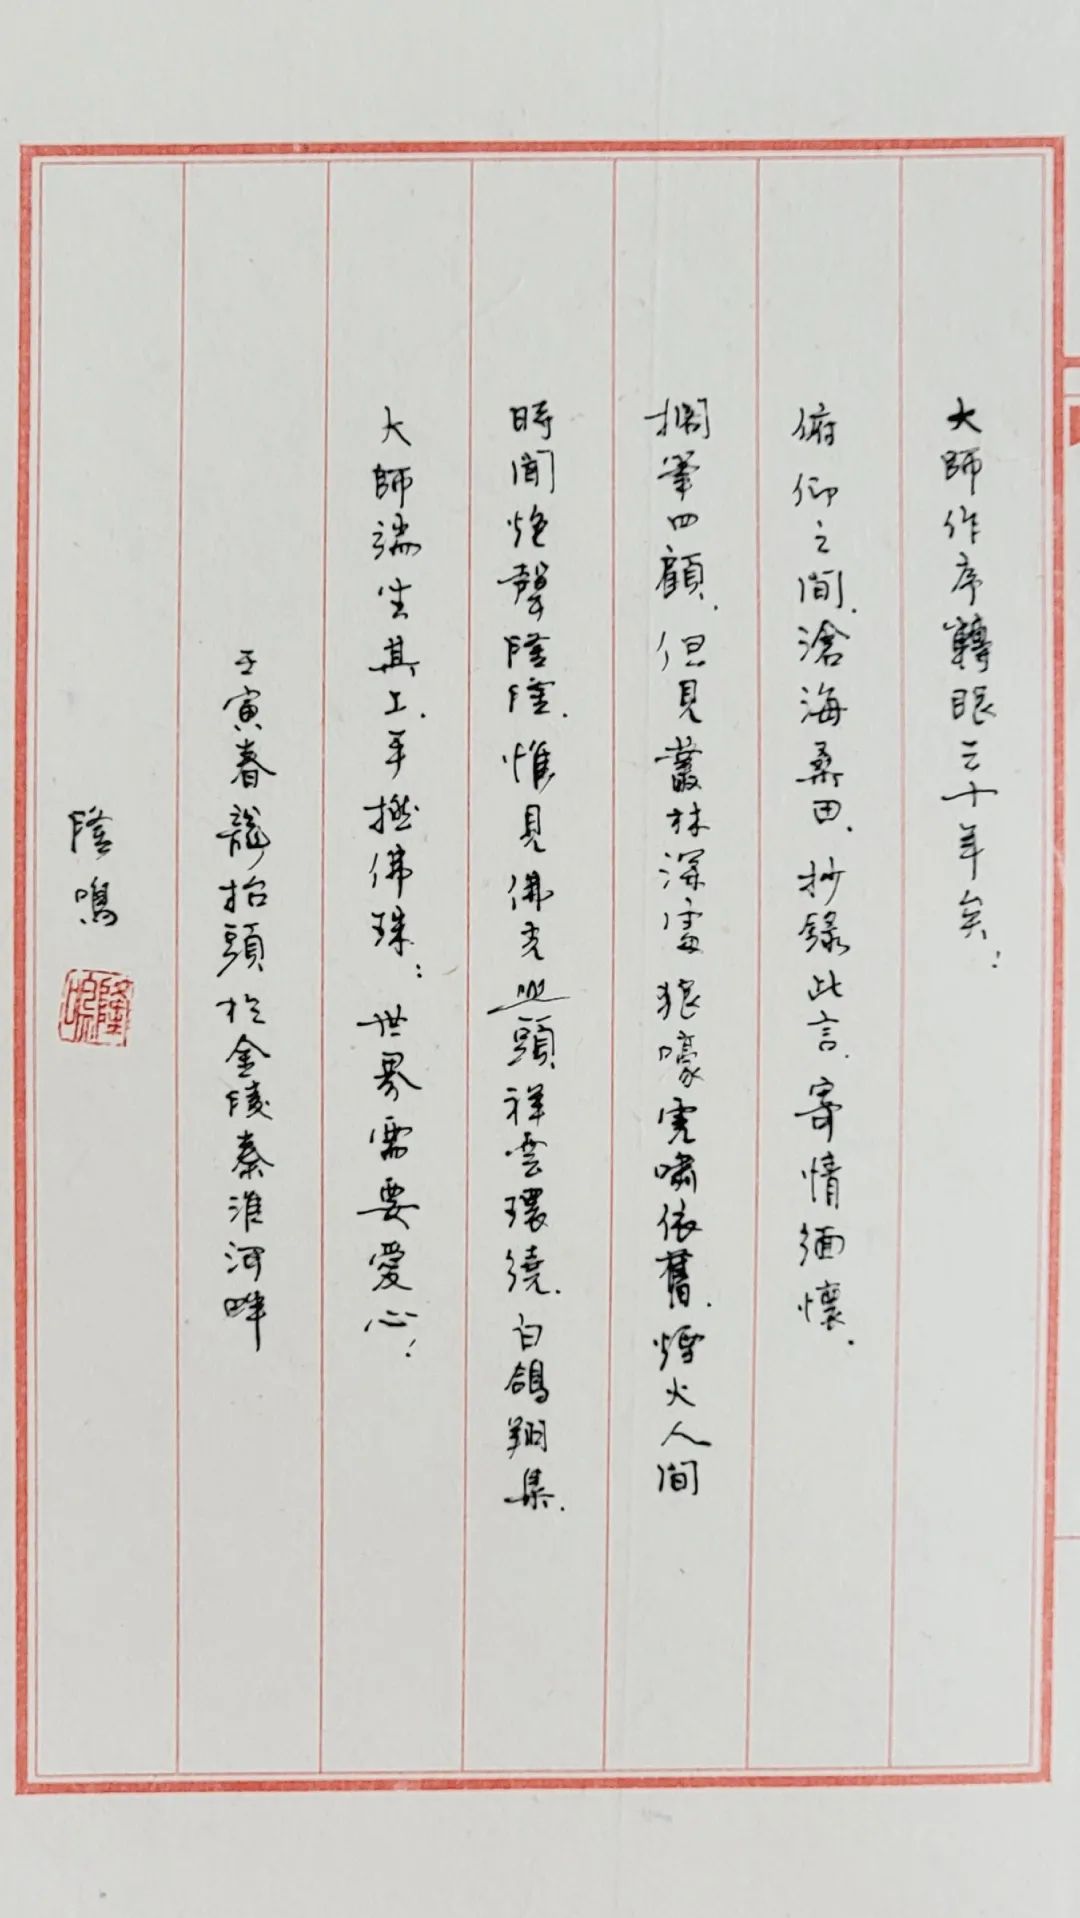 大師作序轉眼三十年矣：
俯仰之間，滄海桑田，抄錄此言，寄情緬懷。
擱筆四顧，但見叢林深處狼嚎虎嘯依舊，煙火人間
時聞炮聲隆隆，惟見佛光興頭祥雲環繞，白鴿翔集，
大師端坐其上，手撚佛珠：世界需要愛心！
壬寅春龍抬頭於金陵秦淮河畔
隆鳴
隆鳴